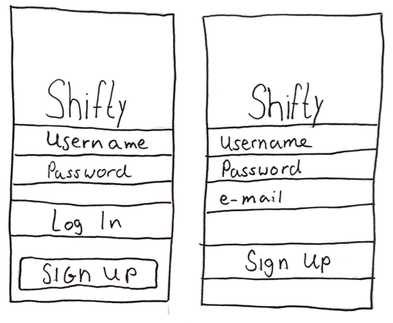 Shifty
Username
Password
Log In
SIGN UP
Shifty
Username
Password
e-mail
Sign Up